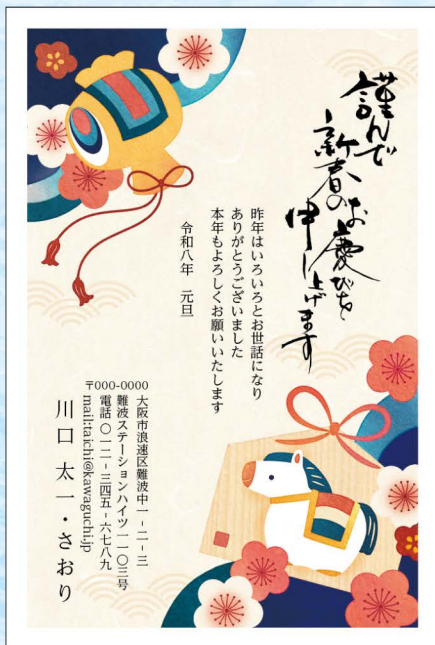 謹んで
新春のお慶びを
申し上げます
昨年はいろいろとお世話になり
ありがとうございました
本年もよろしくお願いいたします
令和八年 元旦
〒000-0000
大阪市浪速区難波中一-二-三
難波ステーションハイツ一一〇三号
電話〇一二-三四五-六七八九
mail:taichi@kawaguchi.jp
川口 太一・さおり